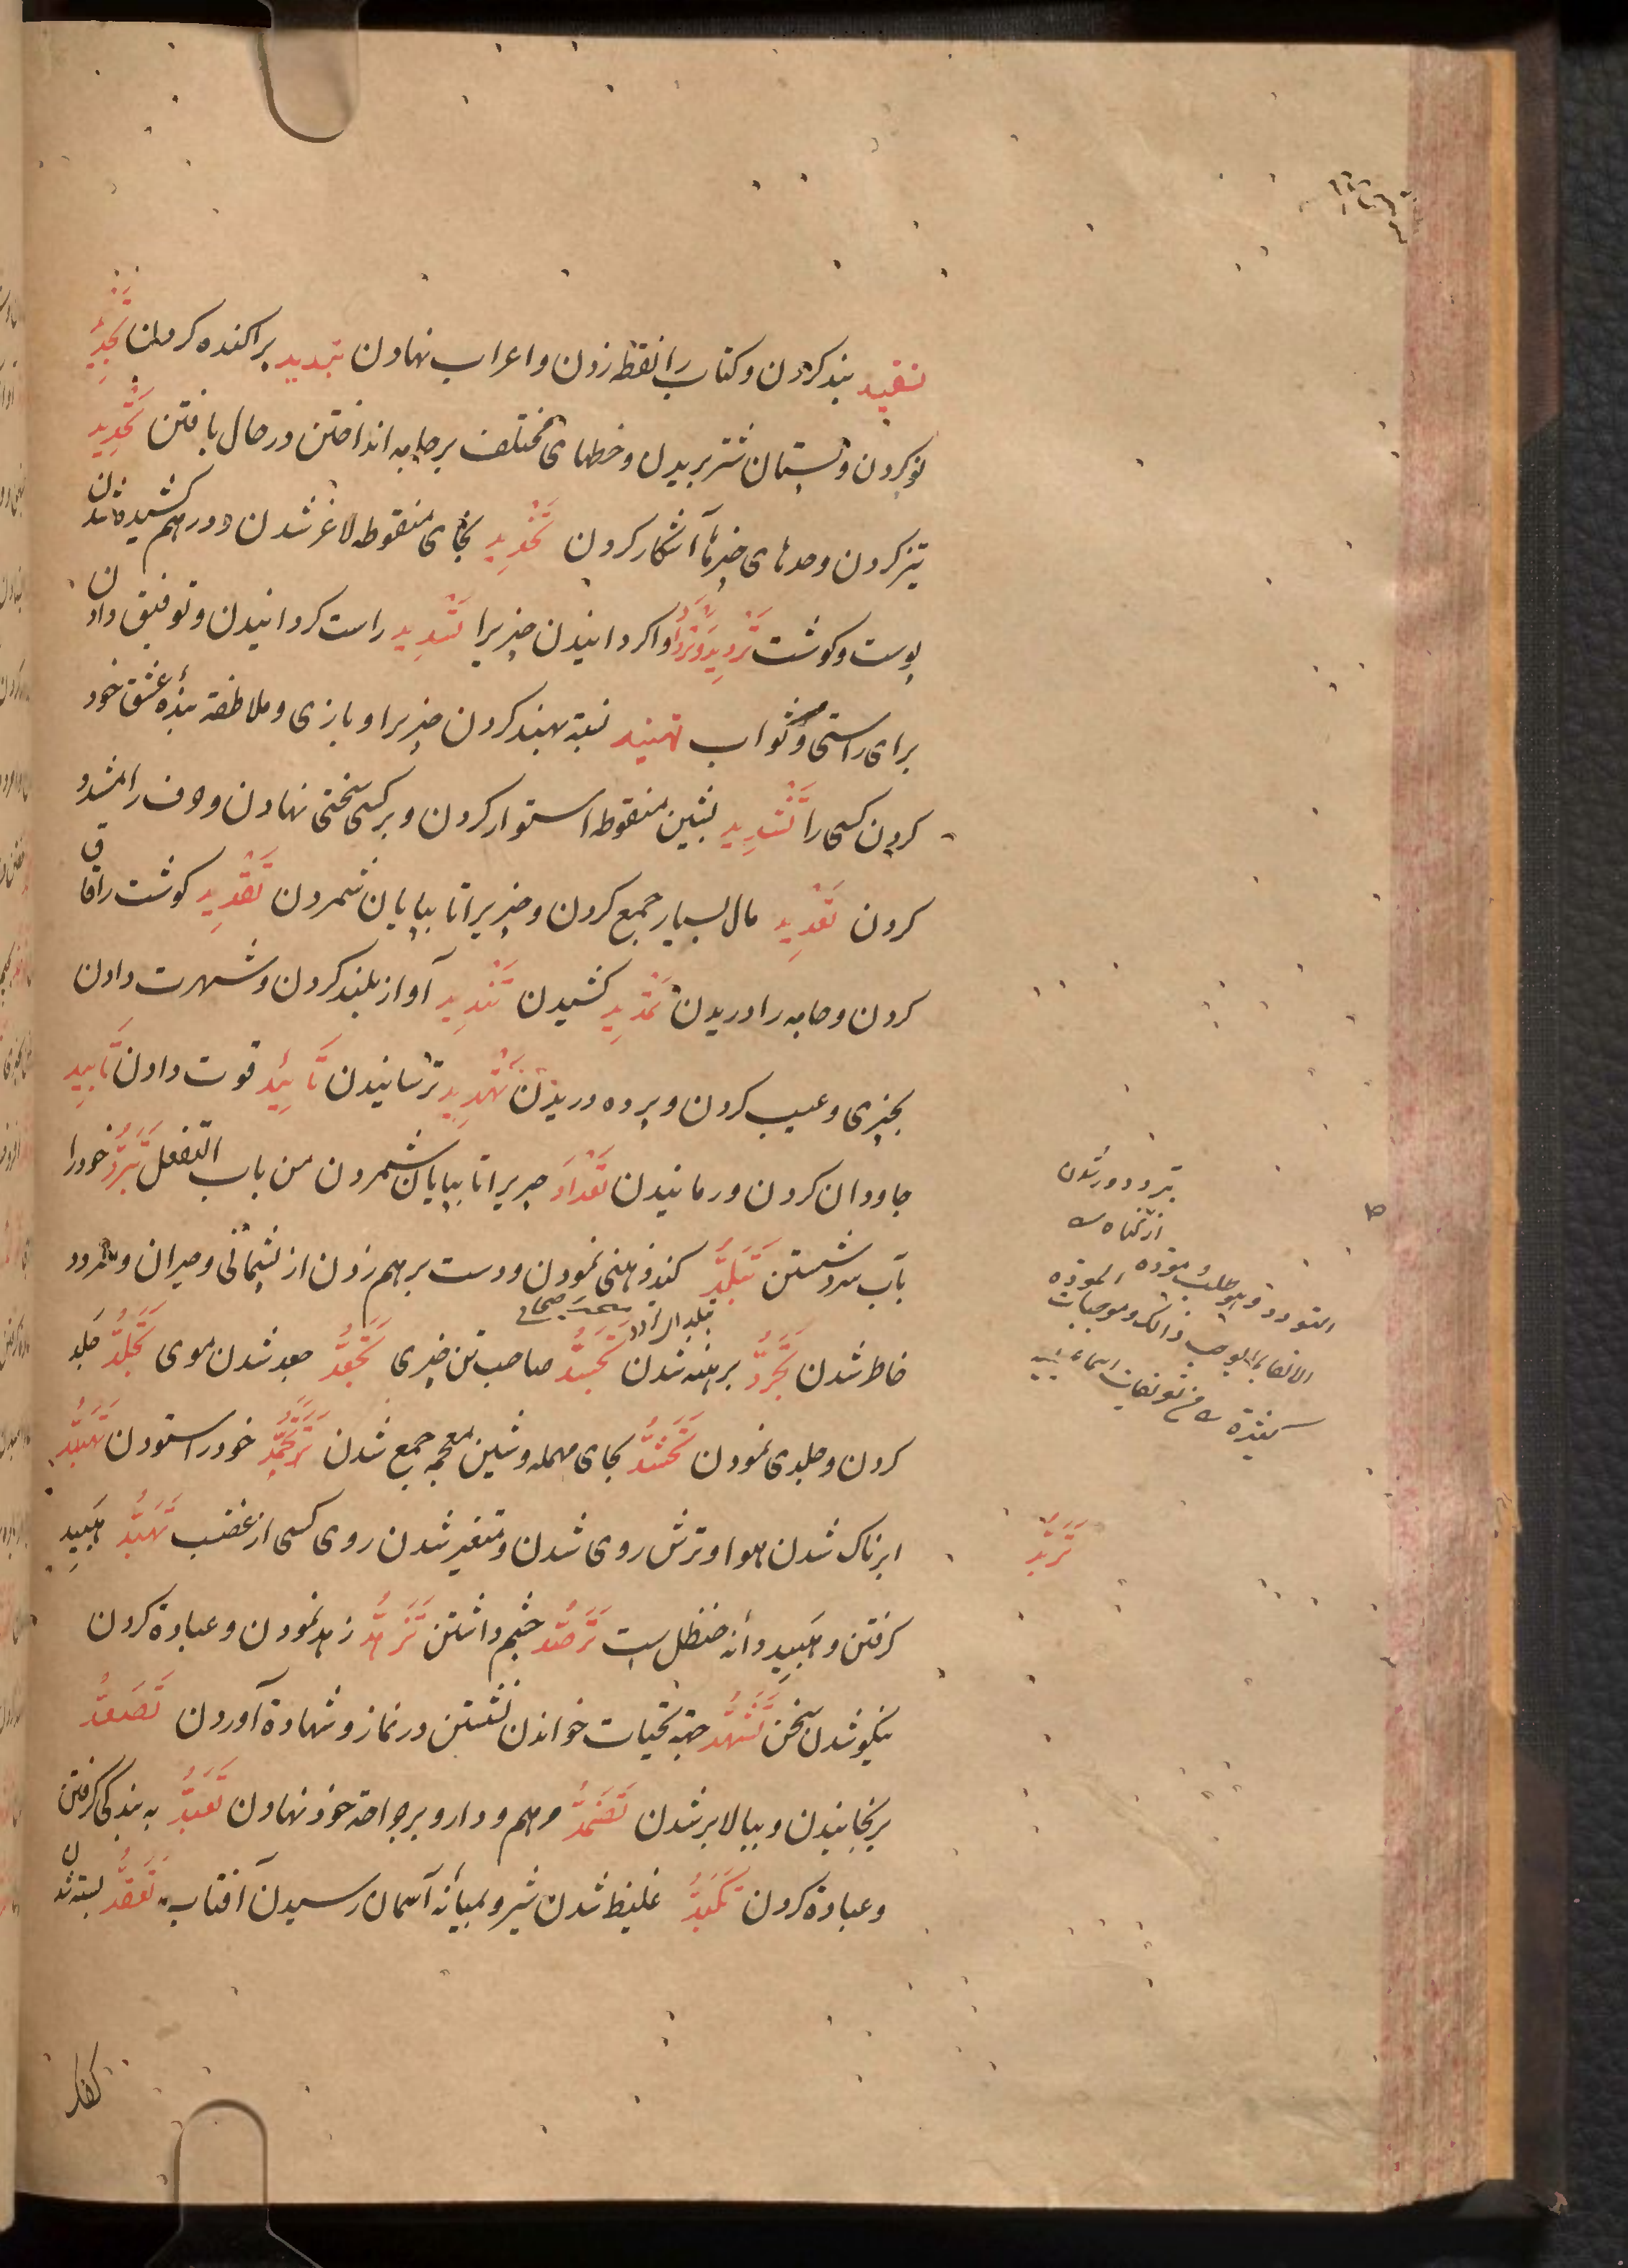 تقیید بند کردن و کتاب را نقطه زدن و اعراب نهادن تبدید پراکنده کردن تَجْدِید
نو کردن و پستان شتر بریدن و خطهای مختلف بر جامه انداختن در حال بافتن تَحْدِید
تیز کردن و حدهای چیزها آشکار کردن تَخْدِید بخای منقوطه لاغر شدن و در هم کشیده شدن
پوست و گوشت تَرْدِید وَتَرْدَاد واگردانیدن چیزیرا تَسْدِید راست گردانیدن و توفیق دادن
برای راستی و ثواب تهنید نسبة بهند کردن چیزیرا و بازی و ملاطفة بنده عشق خود
کردن کسی را تَشْدِید بشین منقوطه استوار کردن و بر کسی سختی نهادن و حرف را مشدد
کردن تَعْدِید مال بسیار جمع کردن و چیزیرا تا بپایان شمردن تَقْدِید گوشت را قاق
کردن و جامه را دریدن تَمْدِید کشیدن تَنْدِید آواز بلند کردن و شهرت دادن
بچیزی و عیب کردن و پرده دریدن تَهْدِید ترسانیدن تَأیِید قوت دادن تَأبِید
جاودان کردن و رمانیدن تَعْدَاد چیزیرا تا بپایان شمردن من باب التفعل تَبَرُّد خود را
بآب سرد شستن تَبَلُّد کند ذهنی نمودن و دست بر هم زدن از پشیمانی و حیران و متردد
خاطر شدن تَجَرُّد برهنه شدن تَجَسُّد صاحب تن چیزی تَجَعُّد جعد شدن موی تَجَلُّد جلد
کردن و جلدی نمودن تَحَشُّد بحای مهمله و شین معجمه جمع شدن خود را ستودن
ابرناک شدن هوا و ترش روی شدن و متغیر شدن روی کسی از غضب تَهَبُّد هَبِید
گرفتن و هَبِید دانه حنظل است تَرَصُّد چشم داشتن تَزَهُّد زهد نمودن و عبادة کردن
نیکو شدن سخن تَشَهُّد جهة تحیات خواندن نشستن در نماز و شهادة آوردن تَصَعُّد
برنجانیدن و ببالا بر شدن تَضَمُّد مرهم و دارو بر جراحة خود نهادن تَعَبُّد به بندگی گرفتن
و عبادة کردن تَکَبُّد غلیظ شدن شیر و بمیانه آسمان رسیدن آفتاب تَعَقُّد بسته شدن
تردد دور شدن
از گناه
التودد وهو طلب مودة
تَرَبُّد